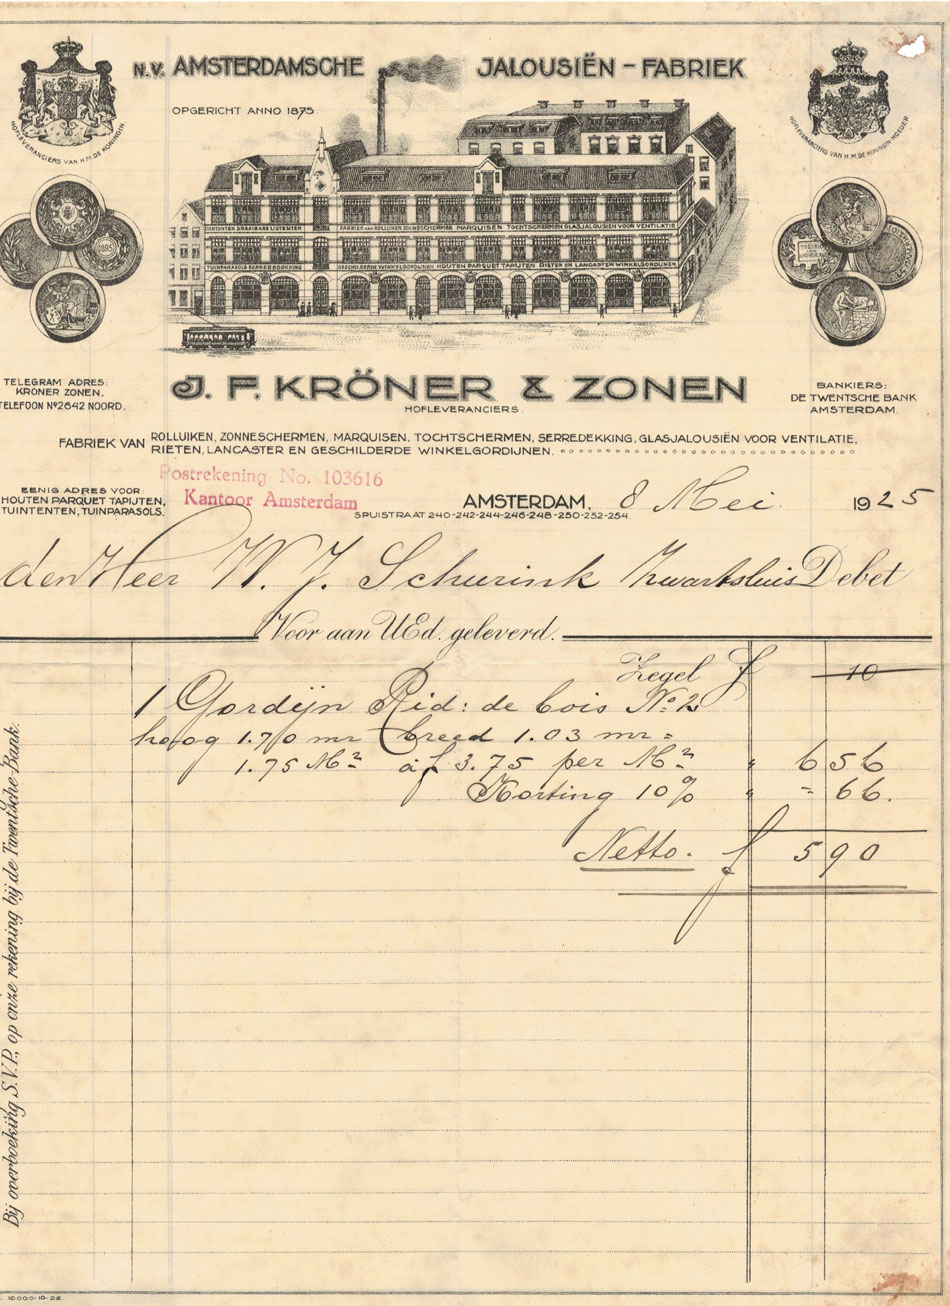 N.V. AMSTERDAMSCHE JALOUSIËN-FABRIEK
OPGERICHT ANNO 1875
HOFLEVERANCIERS VAN H.M. DE KONINGIN
HOFLEVERANCIERS VAN H.M. DE KONINGIN-MOEDER
1895
FABRIEK VAN ROLLUIKEN ZONNESCHERMEN MARQUISEN TOCHTSCHERMEN GLASJALOUSIËN VOOR VENTILATIE
TUINPARASOLS SERREDEKKING GESCHILDERDE WINKELGORDIJNEN HOUTEN PARQUET TAPIJTEN RIETEN EN LANCASTER WINKELGORDIJNEN
TELEGRAM ADRES:
KRÖNER ZONEN,
TELEFOON No 2642 NOORD.
J. F. KRÖNER & ZONEN
HOFLEVERANCIERS.
BANKIERS:
DE TWENTSCHE BANK
AMSTERDAM.
FABRIEK VAN ROLLUIKEN, ZONNESCHERMEN, MARQUISEN, TOCHTSCHERMEN, SERREDEKKING, GLASJALOUSIËN VOOR VENTILATIE,
RIETEN, LANCASTER EN GESCHILDERDE WINKELGORDIJNEN.
Postrekening No. 103616
Kantoor Amsterdam
EENIG ADRES VOOR:
HOUTEN PARQUET TAPIJTEN,
TUINTENTEN, TUINPARASOLS.
AMSTERDAM, 8 Mei 1925
SPUISTRAAT 240-242-244-246-248-250-252-254
den Heer W. J. Schurink Zwartsluis Debet
Voor aan UEd. geleverd.
Zegel f 10
1 Gordijn Rid: de bois No 2
hoog 1.70 mr breed 1.03 mr =
1.75 M2 à f 3.75 per M2 " 6 56
Korting 10% " = 66.
Netto. f 5 90
Bij overboeking S.V.P., op onze rekening bij de Twentsche-Bank.
10000-10-22.